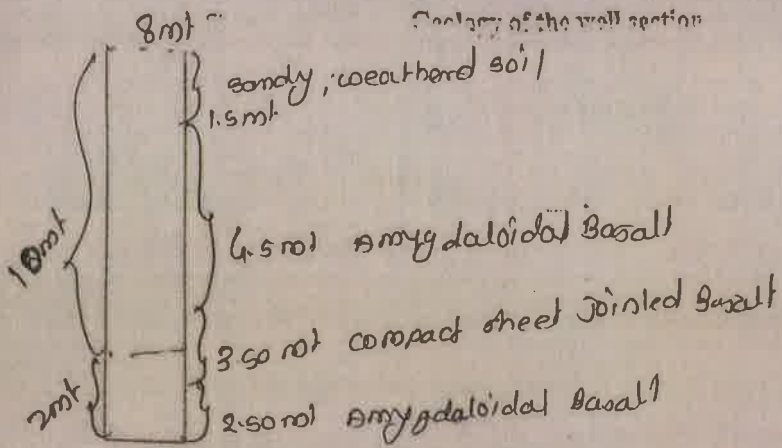 Geology of the well section
8mt
sandy, weatherd soil
1.5mt
4.5mt Amygdaloidal Basalt
10mt
3.50 mt compact sheet Jointed Basalt
2mt
2.50 mt Amygdaloidal Basalt